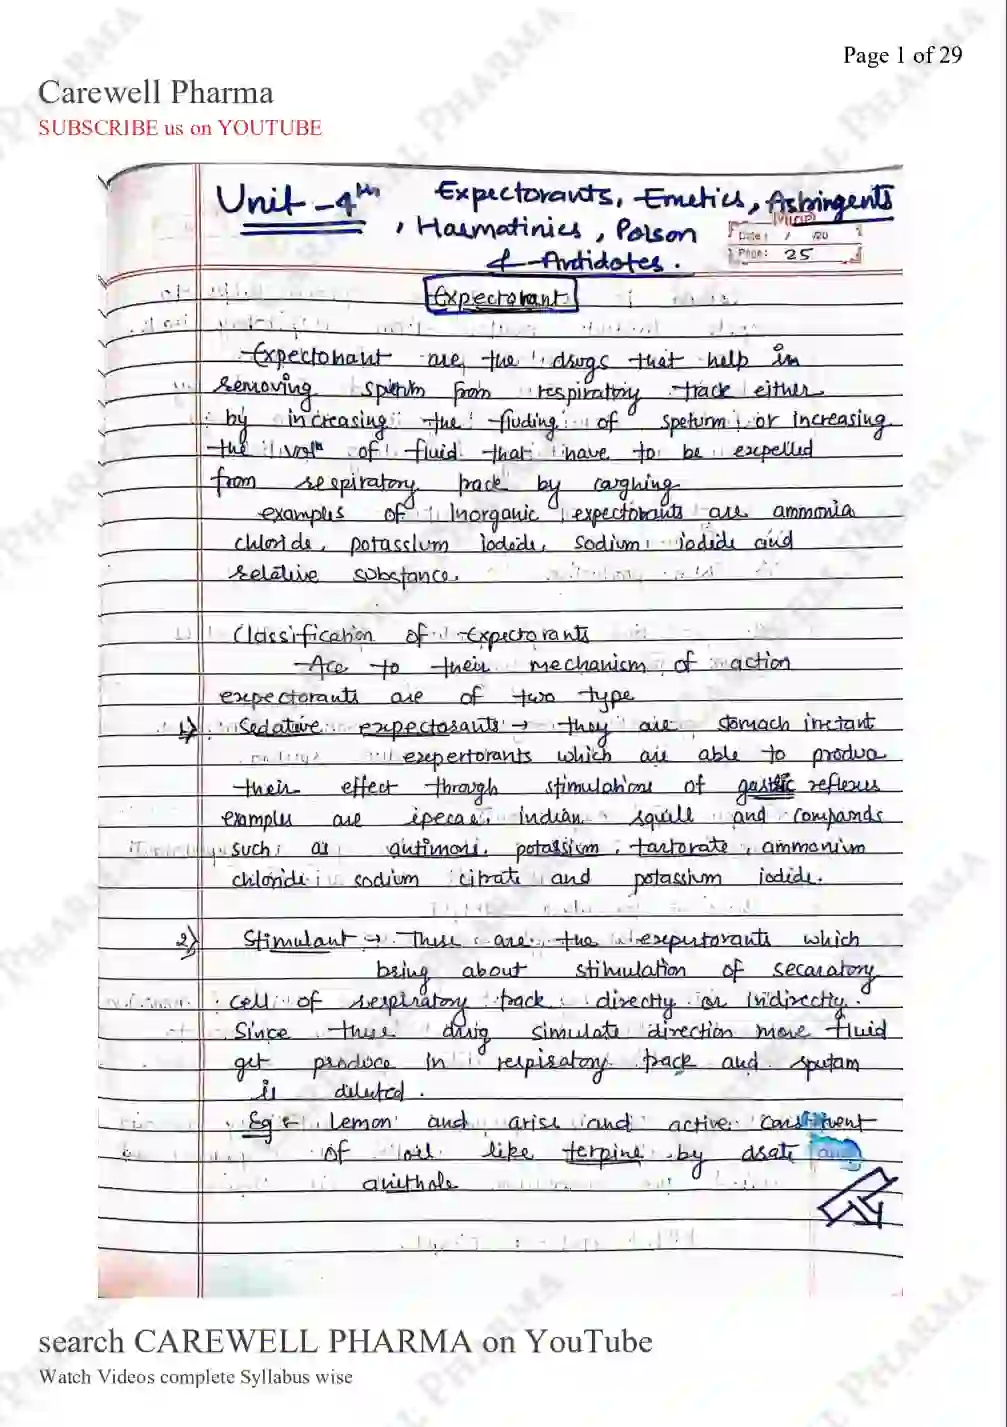 Page 1 of 29
Carewell Pharma
SUBSCRIBE us on YOUTUBE
Unit-4th Expectorants, Emetics, Astringents
, Haematinics, Poison
Date: / /20
& Antidotes.
Page: 25
Expectorant
Expectorant are the drugs that help in
removing sputum from respiratory track either
by increasing the fluding of speturm or increasing
the vol of fluid that have to be expelled
from respiratory track by coughing
examples of Inorganic expectorants are ammonia
chloride, potassium iodede, sodium iodide and
relative substance.
Classification of Expectorants
Acc to their mechanism of action
expectorants are of two type
1) Sedative expectorants → they are stomach
expertorants which are able to produa
their effect through stimulations of gastric reflexus
examples are ipecac, indian squill and compands
such as antimoni, potassium, tartorate, ammonium
chloride, sodium citrate and potassium iodide.
2) Stimulant → These are the expertorants which
being about stimulation of secaratory
cell of respiratory track directly or indirectly.
Since these drug simulate direction more fluid
get produce in respiratory track and sputam
is deluted.
Eg - Lemon and arise and active constituent
of oil like terpine by and
anithole
search CAREWELL PHARMA on YouTube
Watch Videos complete Syllabus wise